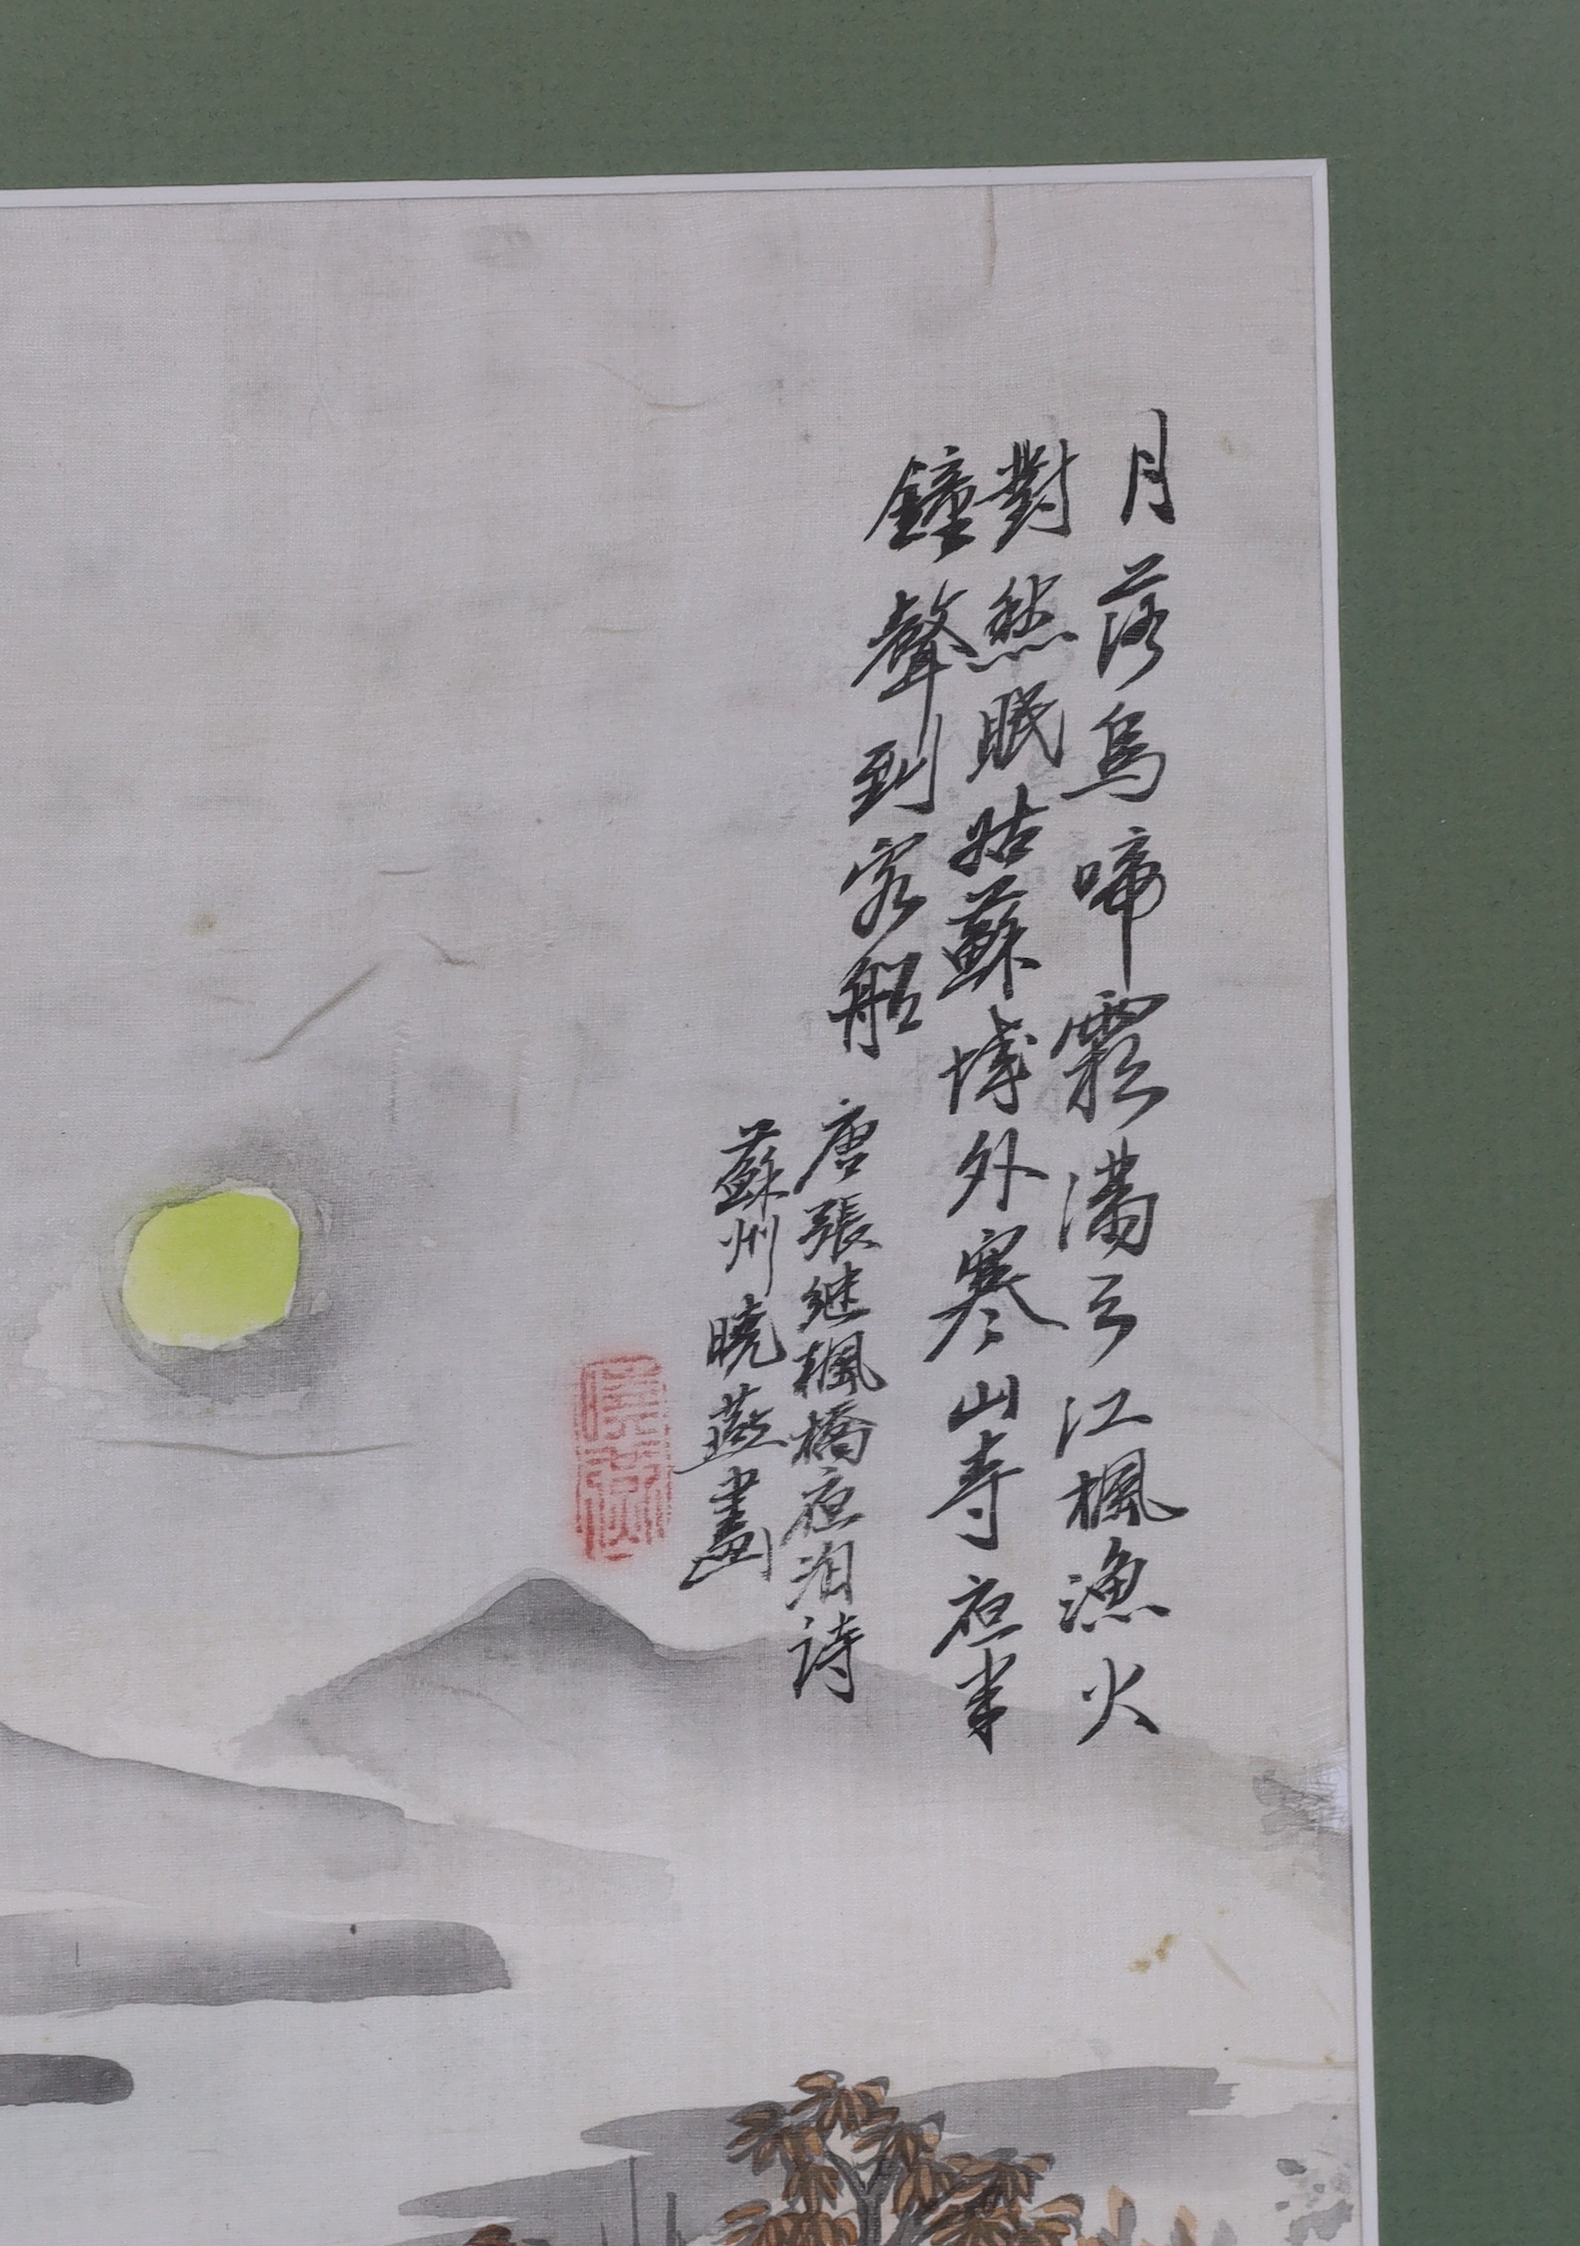 月落烏啼霜滿云江楓漁火
對愁眠姑蘇城外寒山寺夜半
鐘聲到客船
唐張继楓橋夜泊诗
蘇州曉燕畫